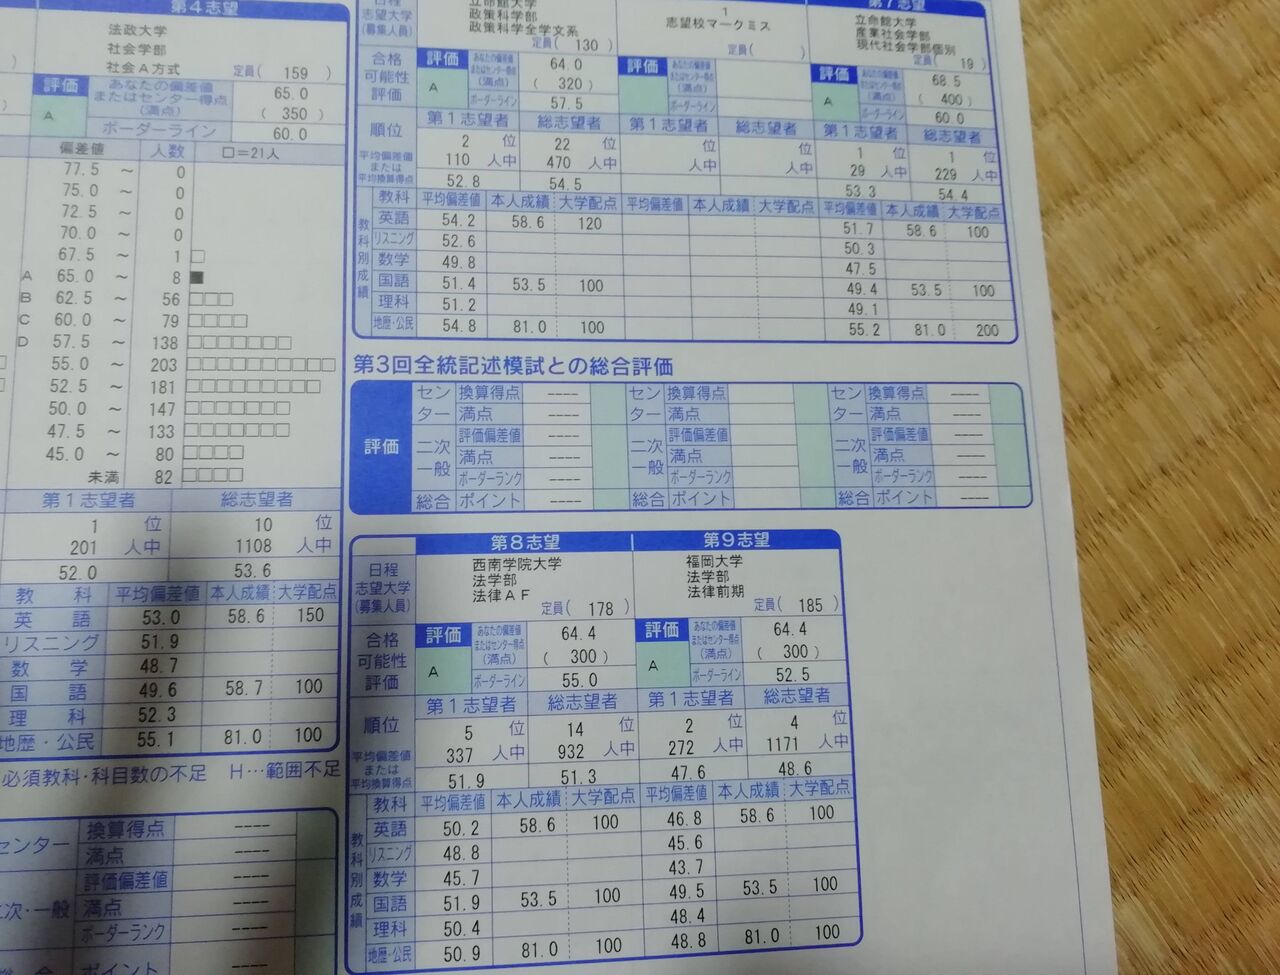 第4志望
法政大学
社会学部
社会A方式 定員( 159 )
評価 あなたの偏差値
またはセンター得点
(満点) 65.0
( 350 )
A
ボーダーライン 60.0
偏差値 人数 □=21人
77.5 ~ 0
75.0 ~ 0
72.5 ~ 0
70.0 ~ 0
67.5 ~ 1 □
A 65.0 ~ 8 ■
B 62.5 ~ 56 □□□
C 60.0 ~ 79 □□□□
D 57.5 ~ 138 □□□□□□□
55.0 ~ 203 □□□□□□□□□□
52.5 ~ 181 □□□□□□□□□
50.0 ~ 147 □□□□□□□
47.5 ~ 133 □□□□□□□
45.0 ~ 80 □□□□
未満 82 □□□□
第1志望者 総志望者
1 位 10 位
201 人中 1108 人中
52.0 53.6
教科 平均偏差値 本人成績 大学配点
英語 53.0 58.6 150
リスニング 51.9
数学 48.7
国語 49.6 58.7 100
理科 52.3
地歴・公民 55.1 81.0 100
必須教科・科目数の不足 H…範囲不足
センター 換算得点 ----
満点 ----
二次・一般 評価偏差値 ----
満点 ----
ボーダーランク ----
ポイント ----
日程
志望大学
(募集人員)
立命館大学
政策科学部
政策科学全学文系
定員( 130 )
1
志望校マークミス
定員( )
第7志望
立命館大学
産業社会学部
現代社会学部個別
定員( 19 )
合格
可能性
評価
評価 あなたの偏差値
またはセンター得点
(満点) 64.0
( 320 )
A
ボーダーライン 57.5
評価 あなたの偏差値
またはセンター得点
(満点)
ボーダーライン
評価 あなたの偏差値
またはセンター得点
(満点) 68.5
( 400 )
A
ボーダーライン 60.0
順位 第1志望者 総志望者 第1志望者 総志望者 第1志望者 総志望者
2 位 22 位 位 位 1 位 1 位
110 人中 470 人中 人中 人中 29 人中 229 人中
平均偏差値
または
平均換算得点
52.8 54.5 53.3 54.4
教科別成績
教科 平均偏差値 本人成績 大学配点 平均偏差値 本人成績 大学配点 平均偏差値 本人成績 大学配点
英語 54.2 58.6 120 51.7 58.6 100
リスニング 52.6 50.3
数学 49.8 47.5
国語 51.4 53.5 100 49.4 53.5 100
理科 51.2 49.1
地歴・公民 54.8 81.0 100 55.2 81.0 200
第3回全統記述模試との総合評価
評価
センター 換算得点 ---- センター 換算得点 センター 換算得点 ----
満点 ---- 満点 満点 ----
二次一般 評価偏差値 ---- 二次一般 評価偏差値 二次一般 評価偏差値 ----
満点 ---- 満点 満点 ----
ボーダーランク ---- ボーダーランク ボーダーランク ----
総合 ポイント ---- 総合 ポイント 総合 ポイント ----
第8志望 第9志望
日程
志望大学
(募集人員)
西南学院大学
法学部
法律AF
定員( 178 )
福岡大学
法学部
法律前期
定員( 185 )
合格
可能性
評価
評価 あなたの偏差値
またはセンター得点
(満点) 64.4
( 300 )
A
ボーダーライン 55.0
評価 あなたの偏差値
またはセンター得点
(満点) 64.4
( 300 )
A
ボーダーライン 52.5
順位 第1志望者 総志望者 第1志望者 総志望者
5 位 14 位 2 位 4 位
337 人中 932 人中 272 人中 1171 人中
平均偏差値
または
平均換算得点
51.9 51.3 47.6 48.6
教科別成績
教科 平均偏差値 本人成績 大学配点 平均偏差値 本人成績 大学配点
英語 50.2 58.6 100 46.8 58.6 100
リスニング 48.8 45.6
数学 45.7 43.7
国語 51.9 53.5 100 49.5 53.5 100
理科 50.4 48.4
地歴・公民 50.9 81.0 100 48.8 81.0 100